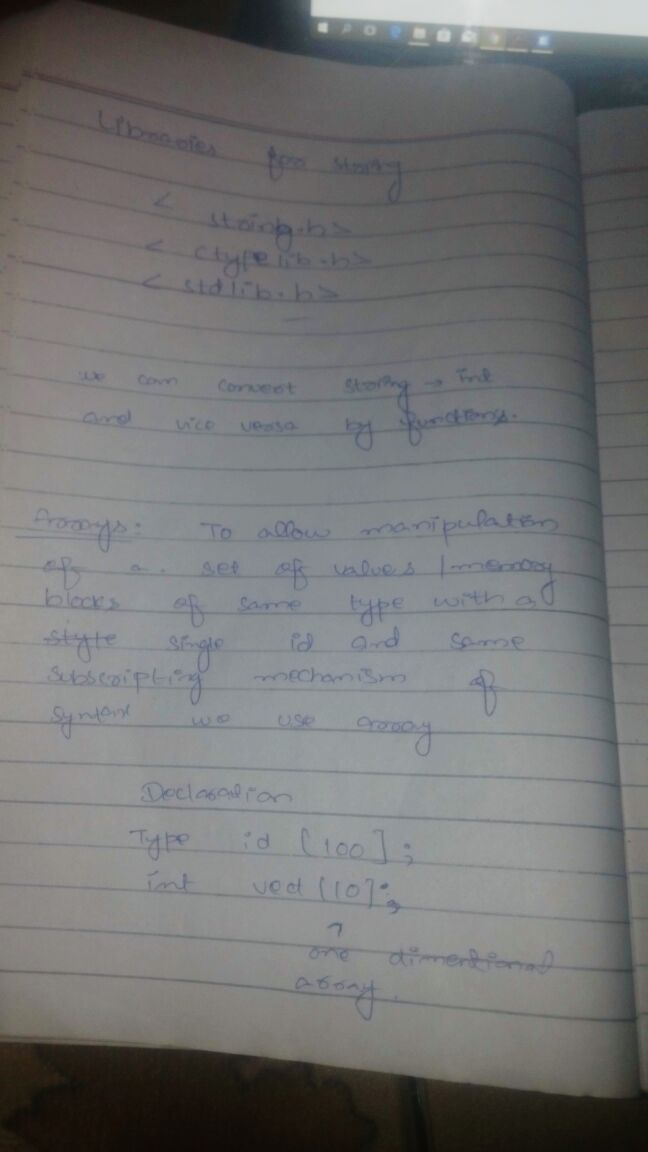 Libraries for string
< string.h>
< ctypelib.h>
< stdlib.h>
we can convert string → int
and vice versa by functions.
Arrays: To allow manipulation
of a. set of values / memory
blocks of same type with a
style single id and same
subscripting mechanism of
syntax we use array
Declaration
Type id [100];
int ved [10];
↑
one dimentional
array.